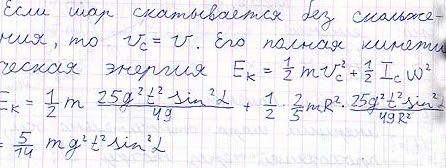 Если шар скатывается без скольже
ния, то v_c = v. Его полная кинети
ческая энергия E_к = 1/2 m v_c² + 1/2 I_c ω²
E_к = 1/2 m 25g²t²sin²α/49 + 1/2 · 2/5 mR² · 25g²t²sin²/49R²
= 5/14 mg²t²sin²α